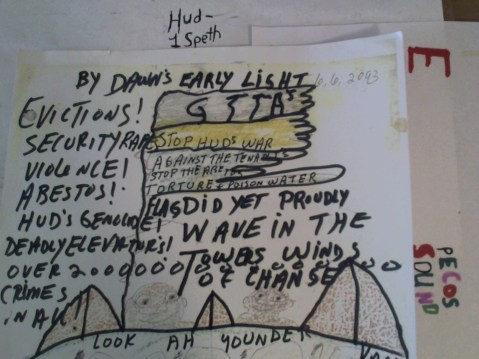 Hud-
1 Speth
BY DAWN'S EARLY LIGHT
EVICTIONS!
SECURITY RAPE
VIOLENCE!
ABESTOS!
HUD'S GENOCIDE!
DEADLY ELEVATOR'S!
OVER 2000000
CRIMES
IN ALL!
STOP HUDS WAR
AGAINST THE TENANTS
STOP THE
TORTURE & POISON WATER
FLAG DID YET PROUDLY
WAVE IN THE
TOWERS WINDS
OF CHANSE
LOOK AH YOUNDER
E
PECOS
SOUND